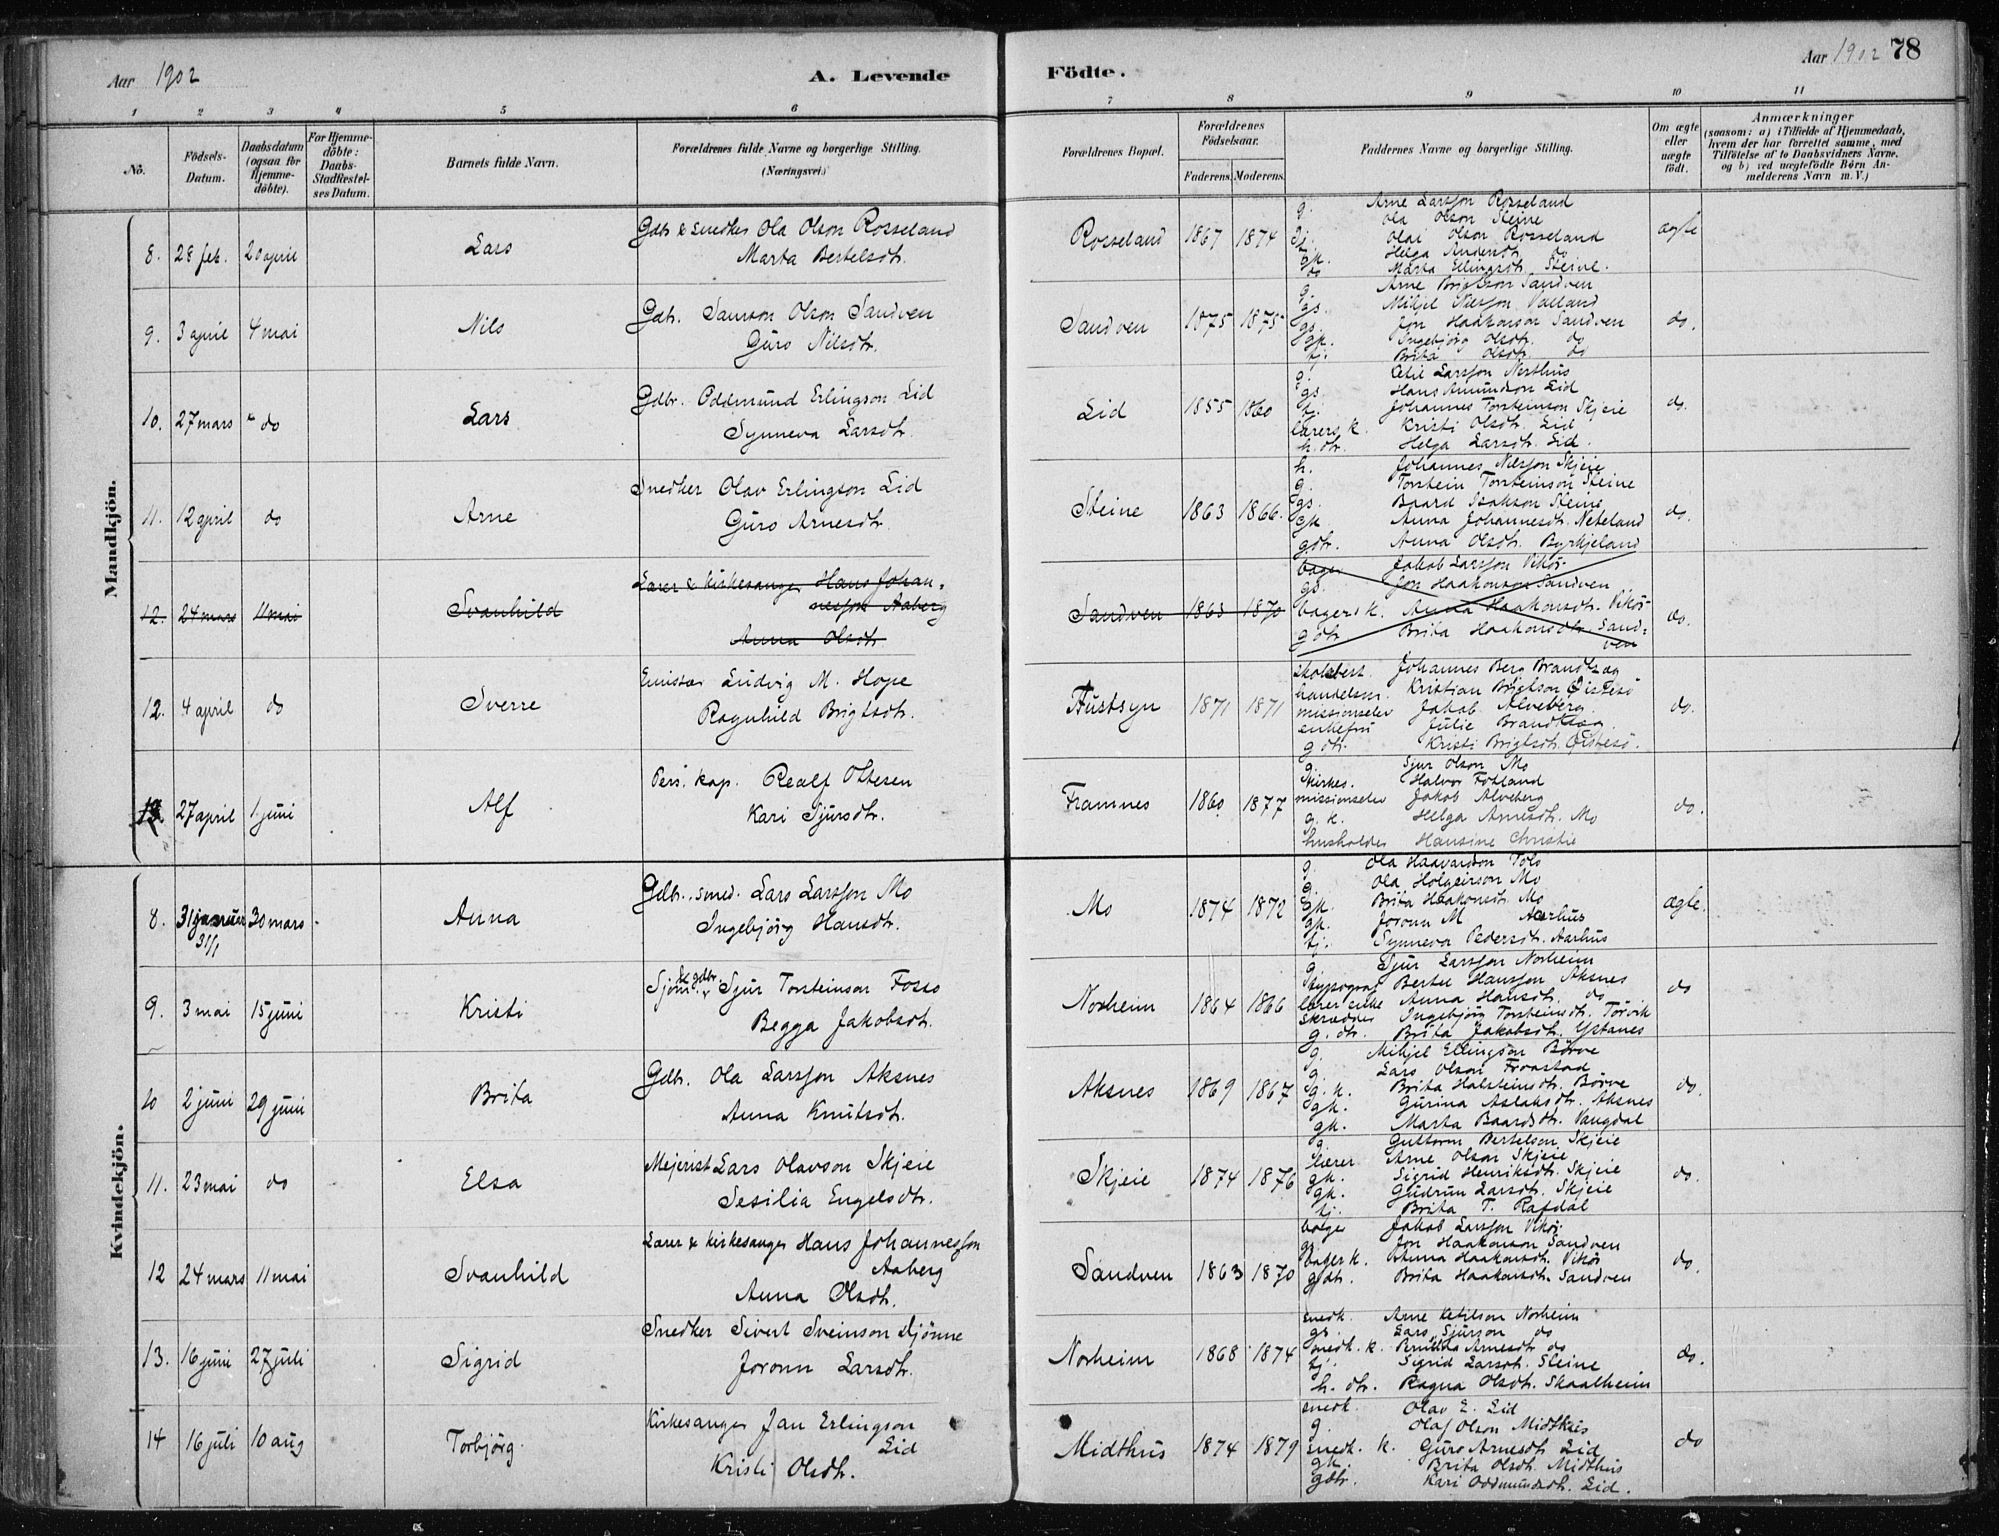 Aar 1902
A. Levende Födte.
Aar 1902 78
1 2 3 4 5 6 7 8 9 10 11
No.
Födsels-Datum.
Daabsdatum (ogsaa for Hjemme-döbte).
For Hjemme-döbte: Daabs-Stadfæstel-ses Datum.
Barnets fulde Navn.
Forældrenes fulde Navne og borgerlige Stilling. (Næringsvei.)
Forældrenes Bopæl.
Forældrenes Födselsaar.
Faderens. Moderens.
Faddernes Navne og borgerlige Stilling.
Om ægte eller uægte födt.
Anmærkninger
(saasom: a) i Tilfælde af Hjemmedaab, hvem der har forrettet samme, med Tilföielse af to Daabsvidners Navne, og b) ved uægtefödte Börn Anmelderens Navn m. V.)
Mandkjön.
8. 28 feb. 20 april Lars
Gdbr & snedker Ola Olson Rosseland
Marta Bertelsdtr.
Rosseland 1867 1874
g. Arne Larsson Rosseland
Ola Olson Steine
Olai Olson Rosseland
gk. Helga Andersdtr. do
do Marta Ellingsdtr. Steine.
ægte
9. 3 april 4 mai Nils
Gdbr. Samson Olson Sandven
Guro Nilsdtr.
Sandven 1875 1875
g. Arne Brigtson Sandven
gs. Mikjel Nilsson
gs. Jon Haakonson Sandven
gk. Ingebjörg Olsdtr. do
tj. Brita Olsdtr. do
do.
10. 27 mars do Lars
Gdbr. Oddmund Erlingson Lid
Synneva Larsdtr.
Lid 1855 1860
g. Ketil Larsson Northus
gs. Hans Amundson Lid
tj. Johannes Torsteinson Skjeie
lærers k. Kristi Olsdtr. Lid
h. dtr. Helga Larsdtr. Lid.
do.
11. 12 april do Arne
Snedker Olav Erlingson Lid
Guro Arnesdtr.
Steine 1863 1866.
h. Johannes Nilsson Skjeie
g. Torstein Torsteinson Steine
gs. Baard Isakson Steine
gk Anna Johannesdtr. Neteland
gdtr. Anna Olsdtr. Byrkjeland
do.
12. 24 mars 11 mai Svanhild
Lærer & kirkesanger Hans Johan-
nesson Aaberg
Anna Olsdtr
Sandven 1863 1870
bager Jakob Larsson Vikör
gs. Jon Haakonson Sandven
bagers k. Anna Haakonsdtr. Vikör
gdtr Brita Haakonsdtr. Sand-
ven
do.
12. 4 april do Sverre
Emissær Ludvig M. Hope
Ragnhild Brigtsdtr.
1871 1871
skolebest Johannes Berg Brandtzæg
handelsm. Kristian Brigtson Öistesö
missionselev Jakob Alveberg.
enkefru Julie Brandtzæg.
g dtr. Kristi Brigtsdtr. Öistesö.
do.
13. 27 april 1 juni Alf
Pers. kap. Realf Ottesen
Kari Sjursdtr.
Framnes 1860 1877
g. Sjur Olson Mo
Kirkes. Halvor Fotland
missionselev Jakob Alveberg
g. k. Helga Arnesdtr. Mo
husholder Hansine Christie
do.
Kvindekjön.
8. 31 januar 30 mars
31/1
Anna
Gdbr. smed. Lars Larsson Mo
Ingebjörg Hansdtr.
Mo 1874 1872
g. Ola Haavardson Tolo
g. Ola Holgeirson Mo
gk. Brita Haakonsdtr. Mo
gk. Joronn M Aarhus
tj. Synneva Pedersdtr. Aarhus
ægte.
9. 3 mai 15 juni Kristi
Sjöm. & gdbr. Sjur Torsteinson Fosso
Begga Jakobsdtr.
Norheim 1864 1866
g. Sjur Larsson Norheim
typograf Bertel Hansson Aksnes
lærer enke Anna Hansdtr. do
skrædder Ingebjörg Torsteinsdtr. Törvik
g. dtr. Brita Jakobsdtr. Ystanes
do
10 2 juni 29 juni Brita
Gdbr. Ola Larsson Aksnes
Anna Knutsdtr.
Aksnes 1869 1867
g. Mikjel Ellingson Börve
g. Lars Olson Froastad
g. k. Brita Halsteinsdtr. Börve
gk. Gurina Aslaksdtr. Aksnes
gk. Marta Baardsdtr. Vangdal
do.
11. 23 mai do Elsa
Mejerist Lars Olavson Skjeie
Sesilia Engelsdtr.
Skjeie 1874 1876
g. Guttorm Bertelson Skjeie
lærer Arne Olson Skjeie
gk. Sigrid Henriksdtr. Skjeie
gk. Gudrun Larsdtr. Skjeie
tj. Brita T. Rafdal
do.
12 24 mars 11 mai Svanhild
Lærer & kirkesanger Hans Johannesson
Aaberg
Anna Olsdtr.
Sandven 1863 1870
bager Jakob Larsson Vikör.
gs. Jon Haakonson Sandven
bager k. Anna Haakonsdtr. Vikör
gdtr. Brita Haakonsdtr. Sandven
do.
13. 16 juni 27 juli Sigrid
Snedker Sivert Sveinson Djönne
Joronn Larsdtr.
Norheim 1868 1874
snedk. Arne Ketilson Norheim
gs. Lars Sjurson do
snedk. k. Arnesdtr do
tj. Sigrid Larsdtr. Steine
h. dtr. Ragna Olsdtr. Skaalheim
do.
14 16 juli 10 aug Torbjörg.
Kirkesanger Jan Erlingson
Lid
Kristi Olsdtr.
Midthus 1874 1879
snedk. Olav E. Lid
g. Olaf Olson Midthus
snedk. k. Guro Arnesdtr. Lid
gk. Brita Olsdtr. Midthus
gdtr. Kari Oddmundsdtr. Lid.
do